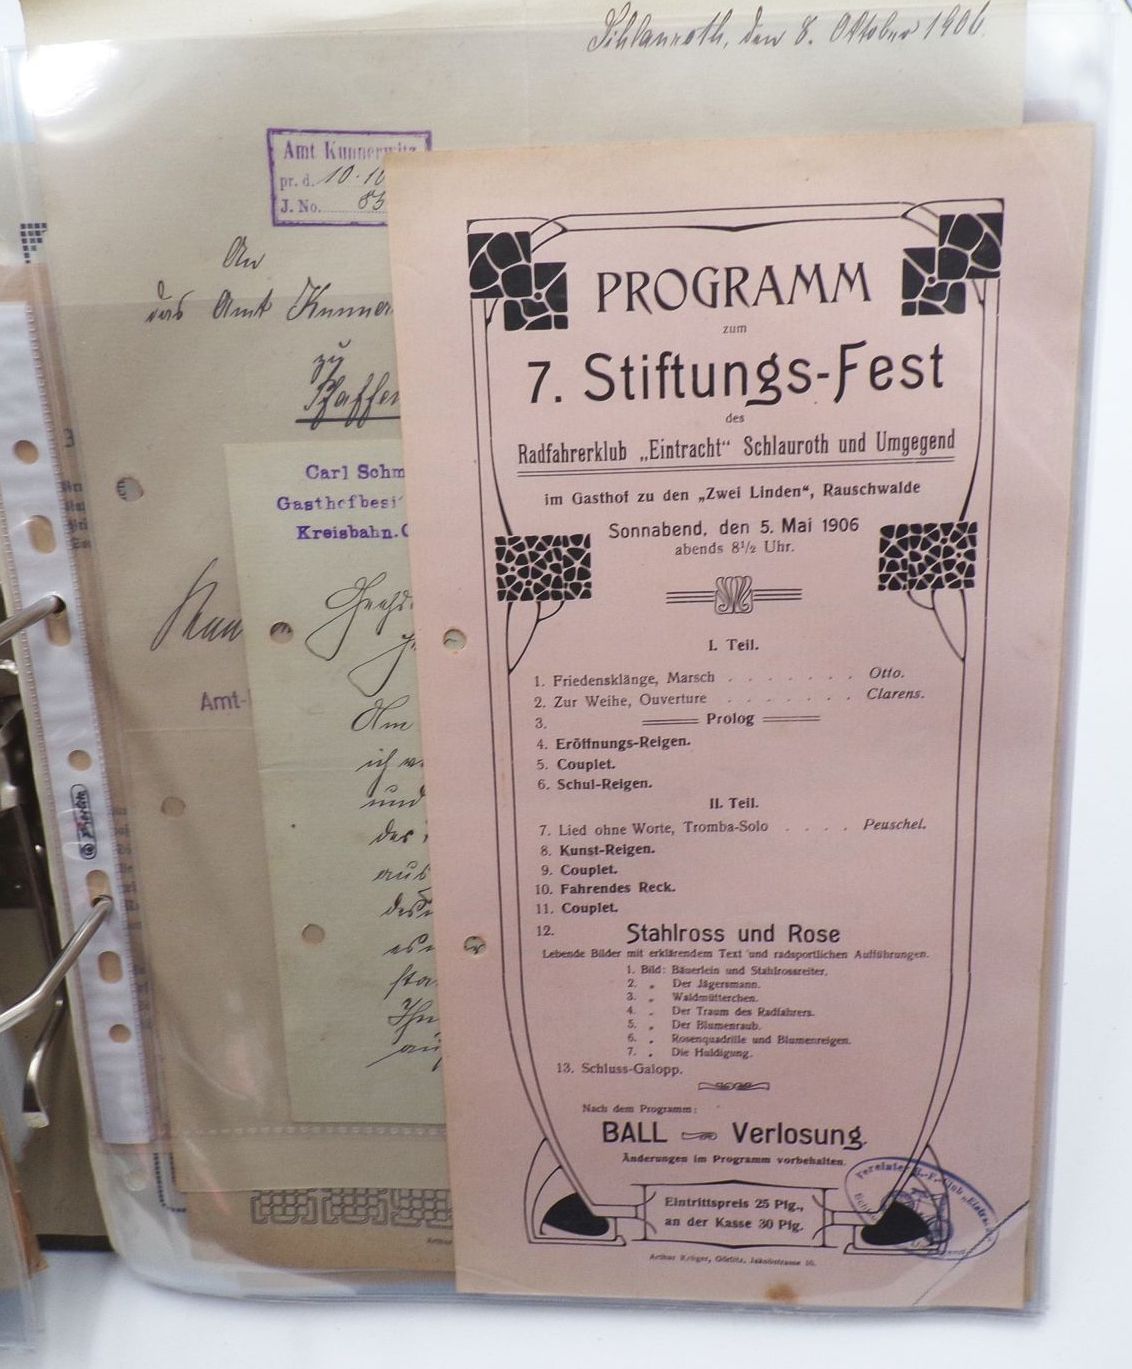 Schlauroth, den 8. Oktober 1906.
Amt Kunnerwitz
pr. d. 10.10
J. No. 83
An
das Amt Kunner
zu
Pfaffen
Carl Schm
Gasthofbesi
Kreisbahn. G
Amt-
Am
ich
und
des
aus
Ihn
Herlitz
PROGRAMM
zum
7. Stiftungs-Fest
des
Radfahrerklub „Eintracht“ Schlauroth und Umgegend
im Gasthof zu den „Zwei Linden“, Rauschwalde
Sonnabend, den 5. Mai 1906
abends 8½ Uhr.
I. Teil.
1. Friedensklänge, Marsch . . . . . . . Otto.
2. Zur Weihe, Ouverture . . . . . . . Clarens.
3. Prolog
4. Eröffnungs-Reigen.
5. Couplet.
6. Schul-Reigen.
II. Teil.
7. Lied ohne Worte, Tromba-Solo . . . . Peuschel.
8. Kunst-Reigen.
9. Couplet.
10. Fahrendes Reck.
11. Couplet.
12. Stahlross und Rose
Lebende Bilder mit erklärendem Text und radsportlichen Aufführungen.
1. Bild: Bäuerlein und Stahlrossreiter.
2. „ Der Jägersmann.
3. „ Waldmütterchen.
4. „ Der Traum des Radfahrers.
5. „ Der Blumenraub.
6. „ Rosenquadrille und Blumenreigen.
7. „ Die Huldigung.
13. Schluss-Galopp.
Nach dem Programm:
BALL Verlosung.
Änderungen im Programm vorbehalten.
Eintrittspreis 25 Pfg.,
an der Kasse 30 Pfg.
Arthur Krüger, Görlitz, Jakobstrasse 10.